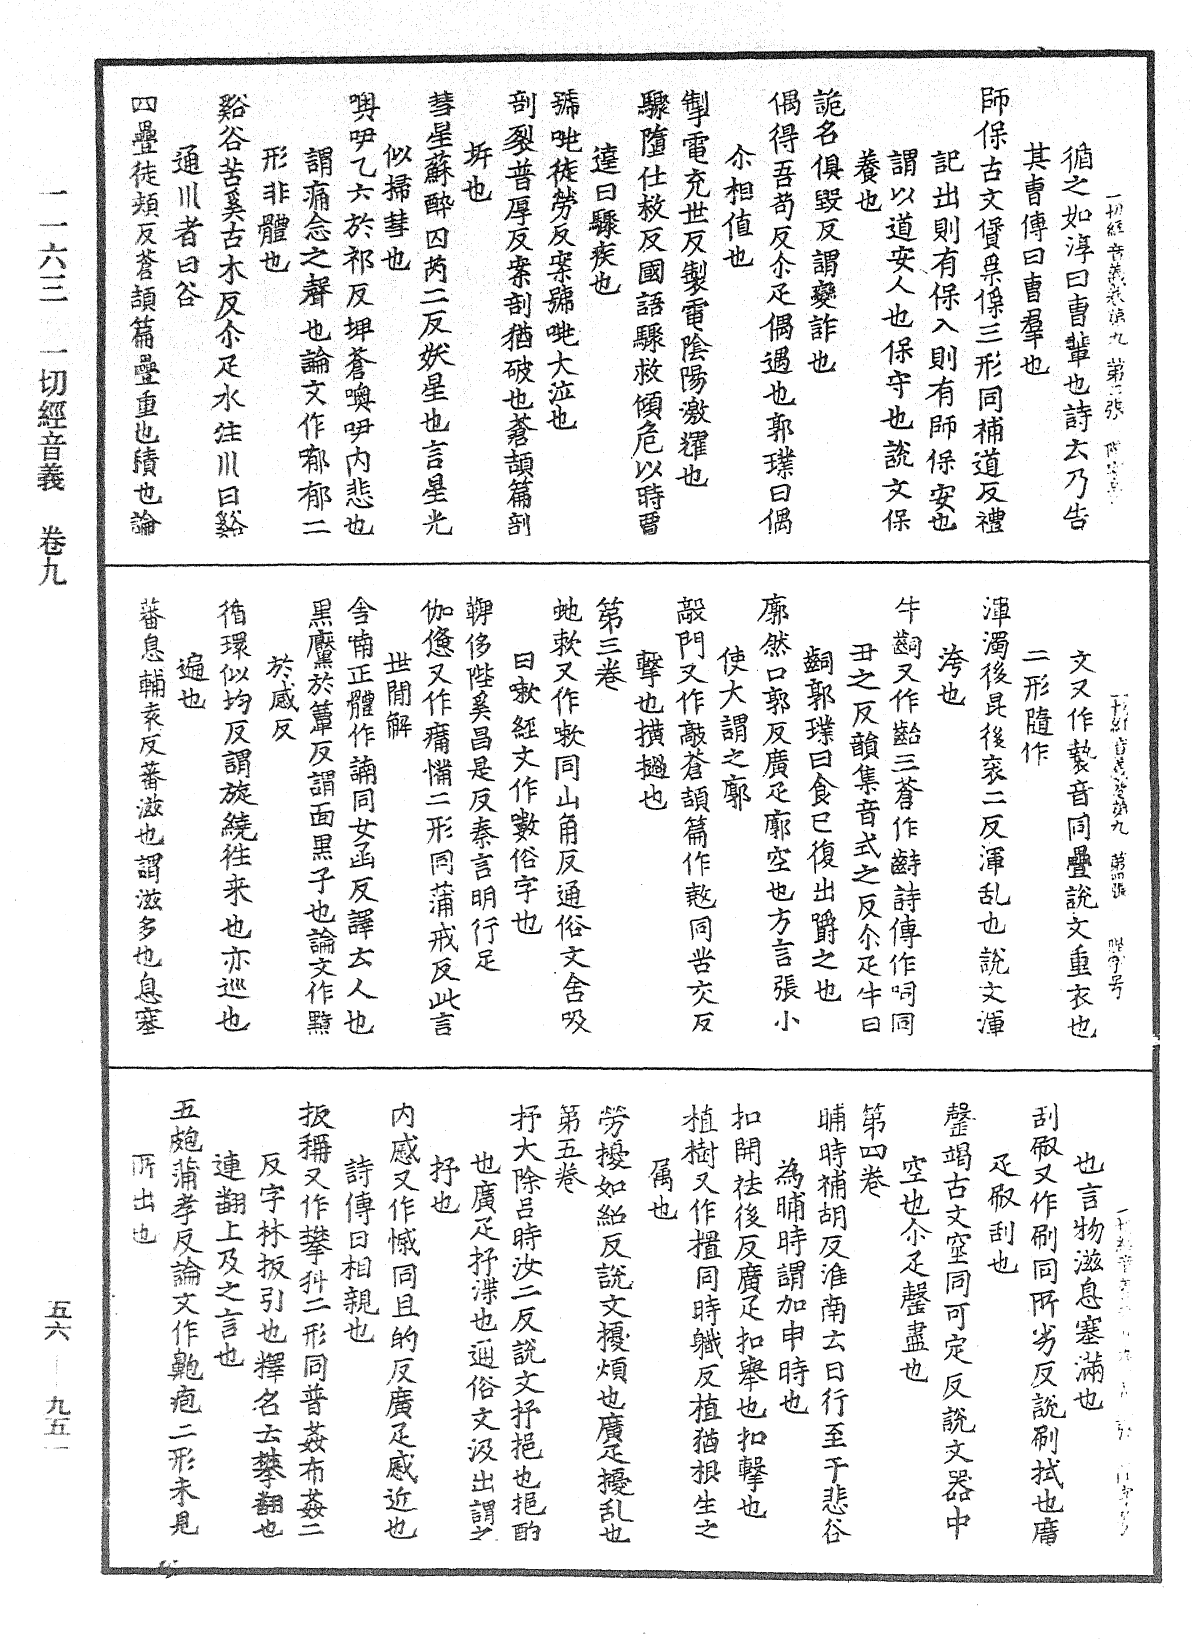 一一六三　一切經音義　卷九
五六—九五一
循之如淳曰曺輩也詩云乃告
其曺傳曰曺羣也
師保古文㑽𠈃𠊻三形同補道反禮
記出則有保入則有師保安也
謂以道安人也保守也說文保
養也
詭名俱毀反謂變詐也
偶得吾苟反尒疋偶遇也郭璞曰偶
尒相值也
掣電充世反掣電陰陽激耀也
驟墮仕救反國語驟救傾危以時賈
逵曰驟疾也
號咷徒勞反案號咷大泣也
剖裂普厚反案剖猶破也蒼頡篇剖
㭊也
彗星蘇醉囚芮二反妖星也言星光
似掃彗也
噢咿乙六於祁反埤蒼噢咿内悲也
謂痛念之聲也論文作嘟郁二
形非體也
谿谷苦奚古木反尒疋水注川曰谿
通川者曰谷
四疊徒頰反蒼頡篇疊重也積也論
文又作褺音同疊說文重衣也
二形隨作
渾濁後昆後衮二反渾乱也說文渾
洿也
牛齝又作齝三蒼作齭詩傳作呞同
丑之反韻集音式之反尒疋牛曰
齝郭璞曰食已復出嚼之也
廓然口郭反廣疋廓空也方言張小
使大謂之廓
敲門又作敲蒼頡篇作㪣同苦交反
擊也撗撾也
第三卷
虵軟又作嗽同山角反通俗文含吸
曰嗽經文作㰅俗字也
鞞侈陛奚昌是反秦言明行足
伽憊又作㾻㣁二形同蒲戒反此言
世間解
含喃正體作諵同女函反譯云人也
黑黶於簟反謂面黑子也論文作黬
於感反
循環似均反謂旋繞往来也亦巡也
遍也
蕃息輔袁反蕃滋也謂滋多也息塞
也言物滋息塞滿也
刮㕞又作刷同所劣反說刷拭也廣
疋㕞刮也
罄竭古文窒同可定反說文器中
空也尒疋罄盡也
第四卷
晡時補胡反淮南云日行至于悲谷
為晡時謂加申時也
扣開祛後反廣疋扣舉也扣擊也
植樹又作㯰同時軄反植猶根生之
属也
勞擾如紹反說文擾煩也廣疋擾乱也
第五卷
抒大除呂時汝二反說文抒挹也挹酌
也廣疋抒渫也通俗文汲出謂之
抒也
内慼又作慽同且的反廣疋慼近也
詩傳曰相親也
扳稱又作攀抍二形同普姦布姦二
反字林扳引也釋名云攀翻也
連翻上及之言也
五皰蒲孝反論文作鼿疱二形未見
所出也